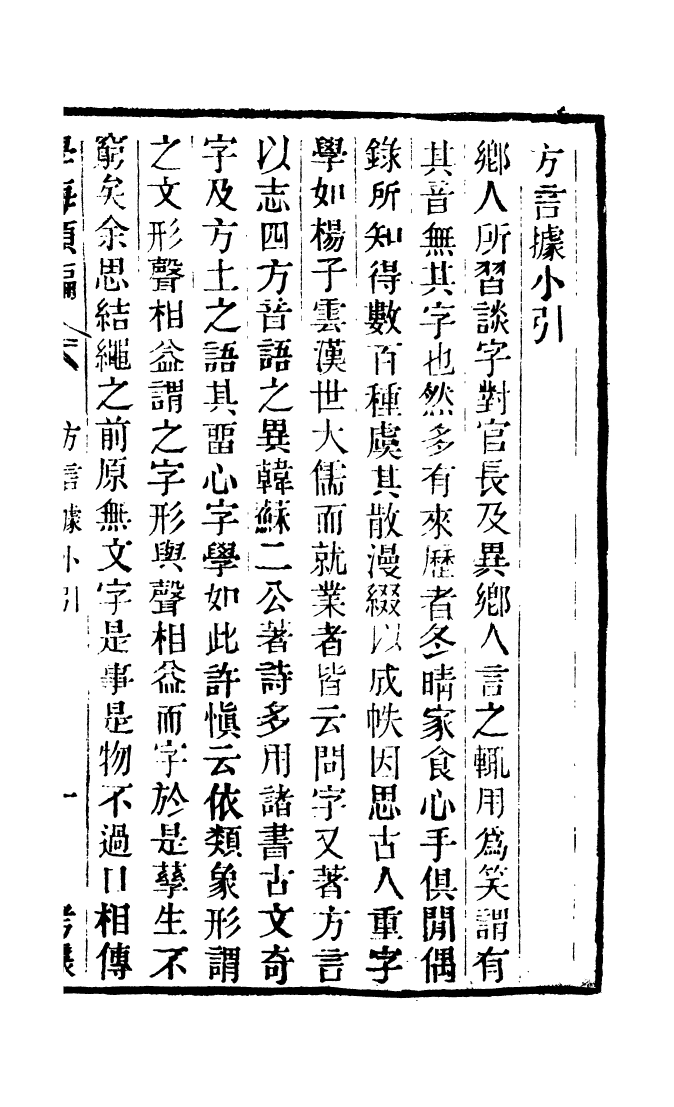 方言據小引
鄉人所習談字對官長及異鄉人言之輒用爲笑謂有
其音無其字也然多有來歷者冬晴家食心手俱閒偶
錄所知得數百種虞其散漫綴以成帙因思古人重字
學如楊子雲漢世大儒而就業者皆云問字又著方言
以志四方音語之異韓蘇二公著詩多用諸書古文奇
字及方土之語其畱心字學如此許愼云依類象形謂
之文形聲相益謂之字形與聲相益而字於是孳生不
窮矣余思結繩之前原無文字是事是物不過口相傳
學海類編 方言據小引 一 考據